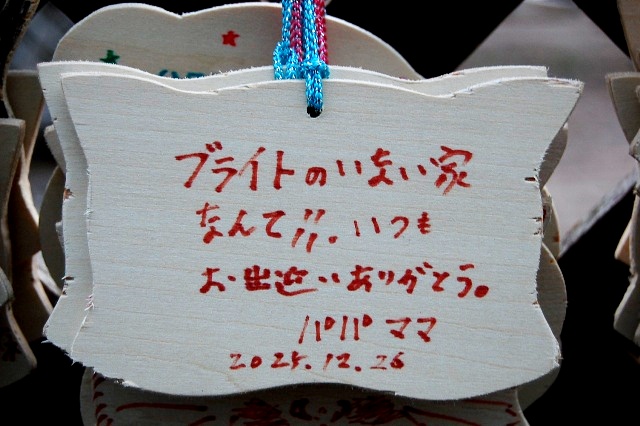 ブライトのいない家
なんて!!。いつも
お出迎いありがとう。
パパ ママ
2025.12.26